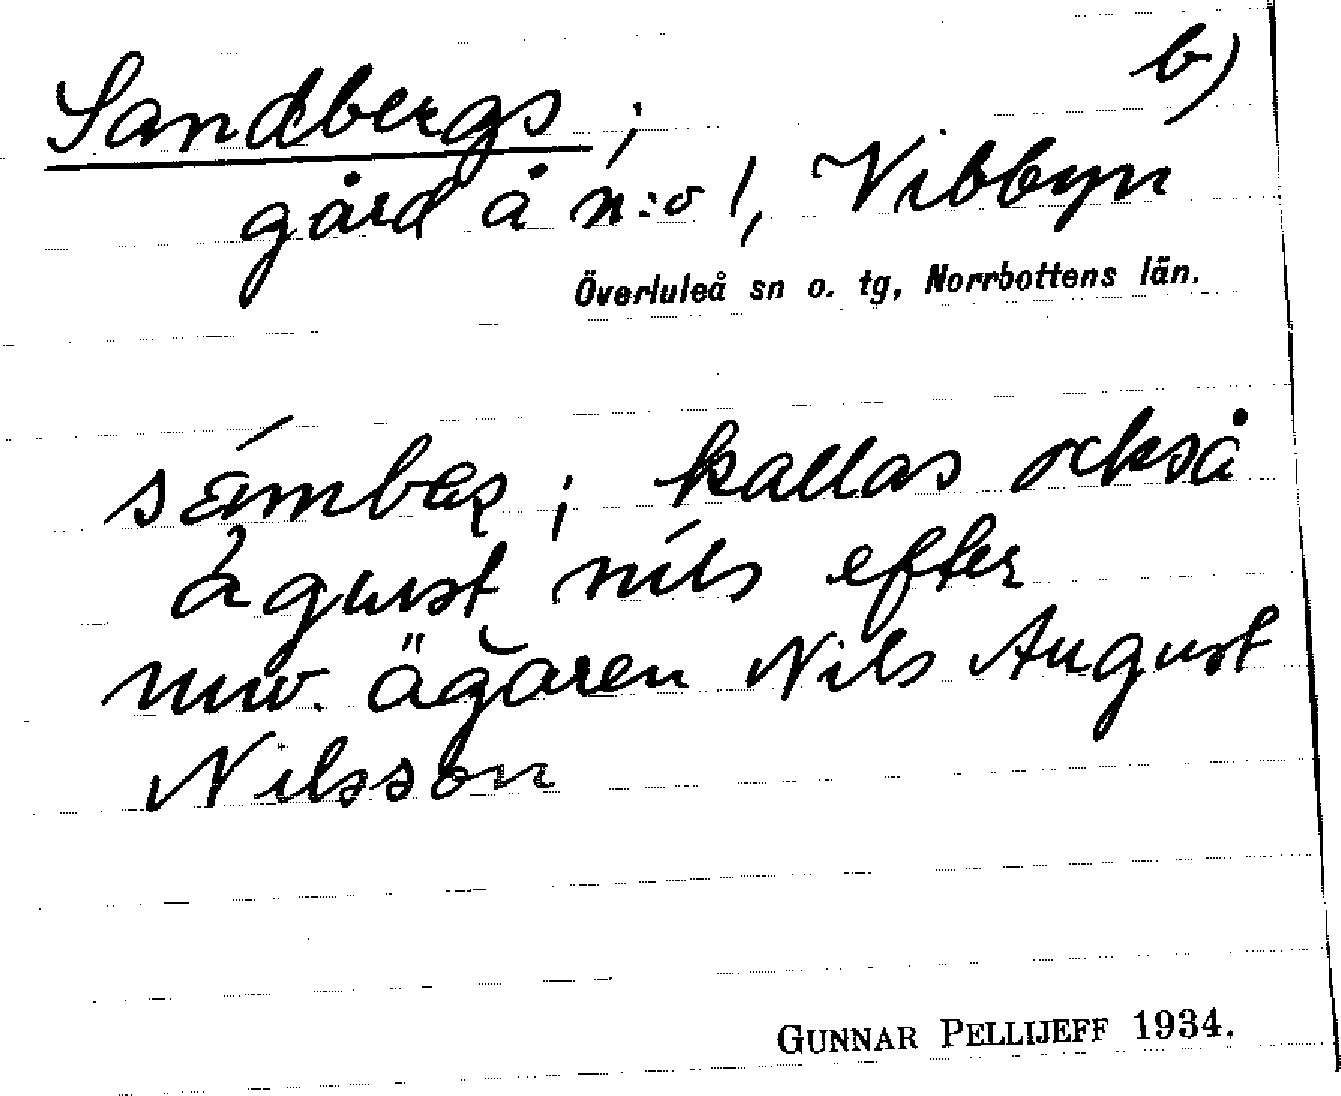 b)
Sandbergs;
gård å n:o 1, Vibbyn
Överluleå sn o. tg, Norrbottens län.
kallas också
nils efter
nuv. ägaren Nils August
Nilsson
GUNNAR PELLIJEFF 1934.